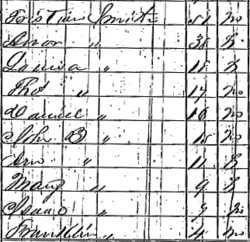 Smith 51 m
" 38 f
Louisa " 18 f
Tho^s " 17 m
Daniel " 16 m
John B " 15 m
Ann " 11 f
Mary " 9 f
Isaac " 7 m
Franklin " 4 m